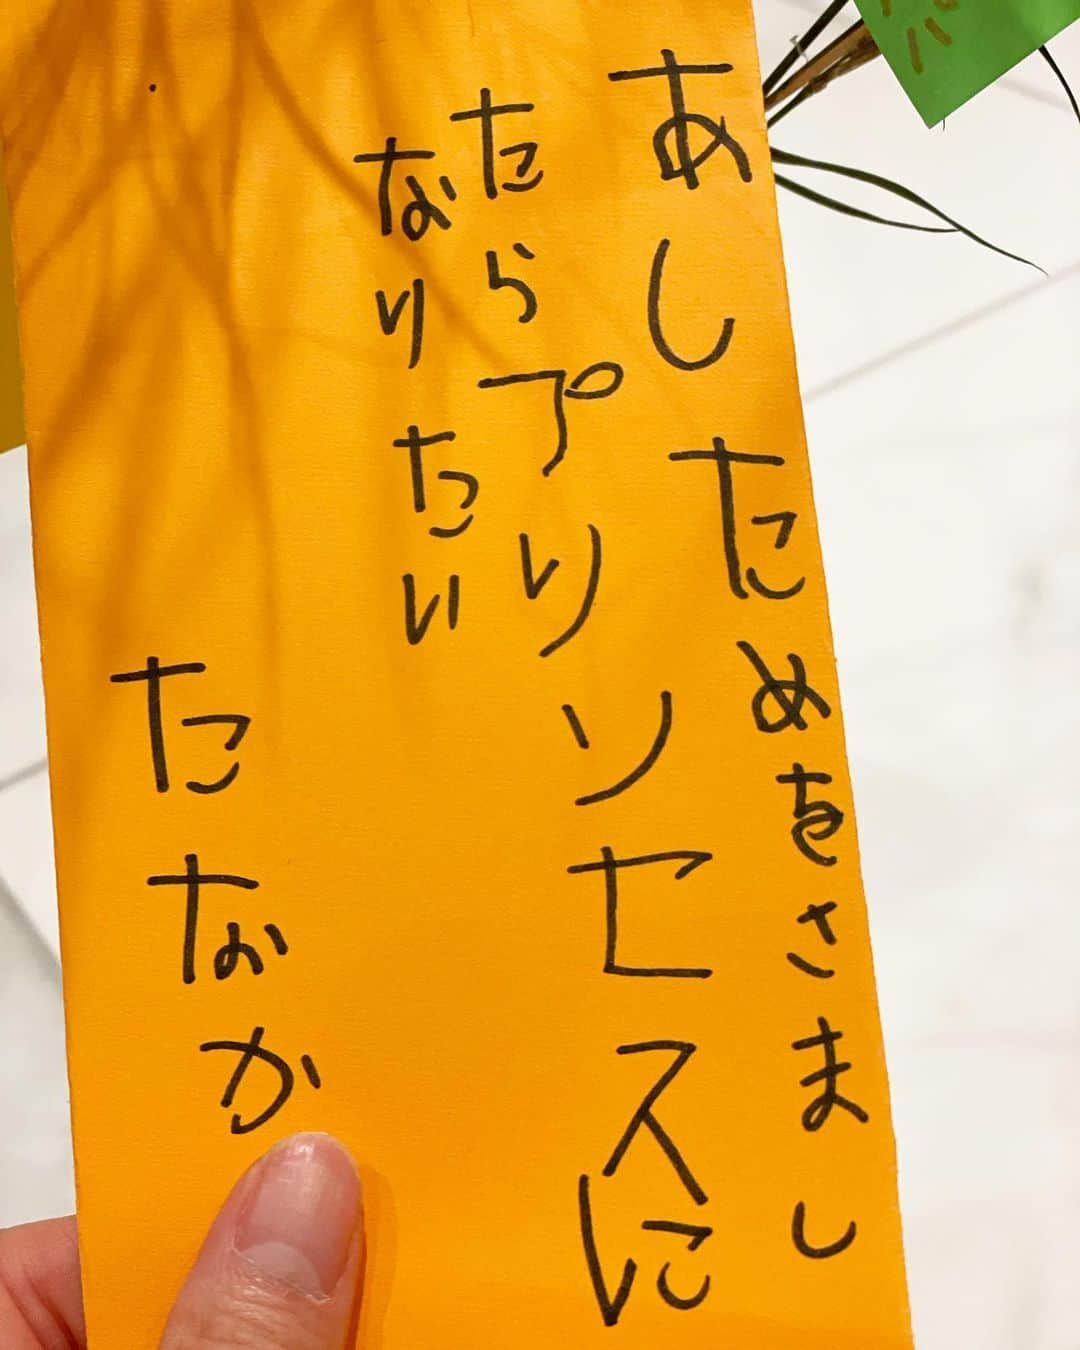 あしためをさまし
たらプリンセスに
なりたい
たなか